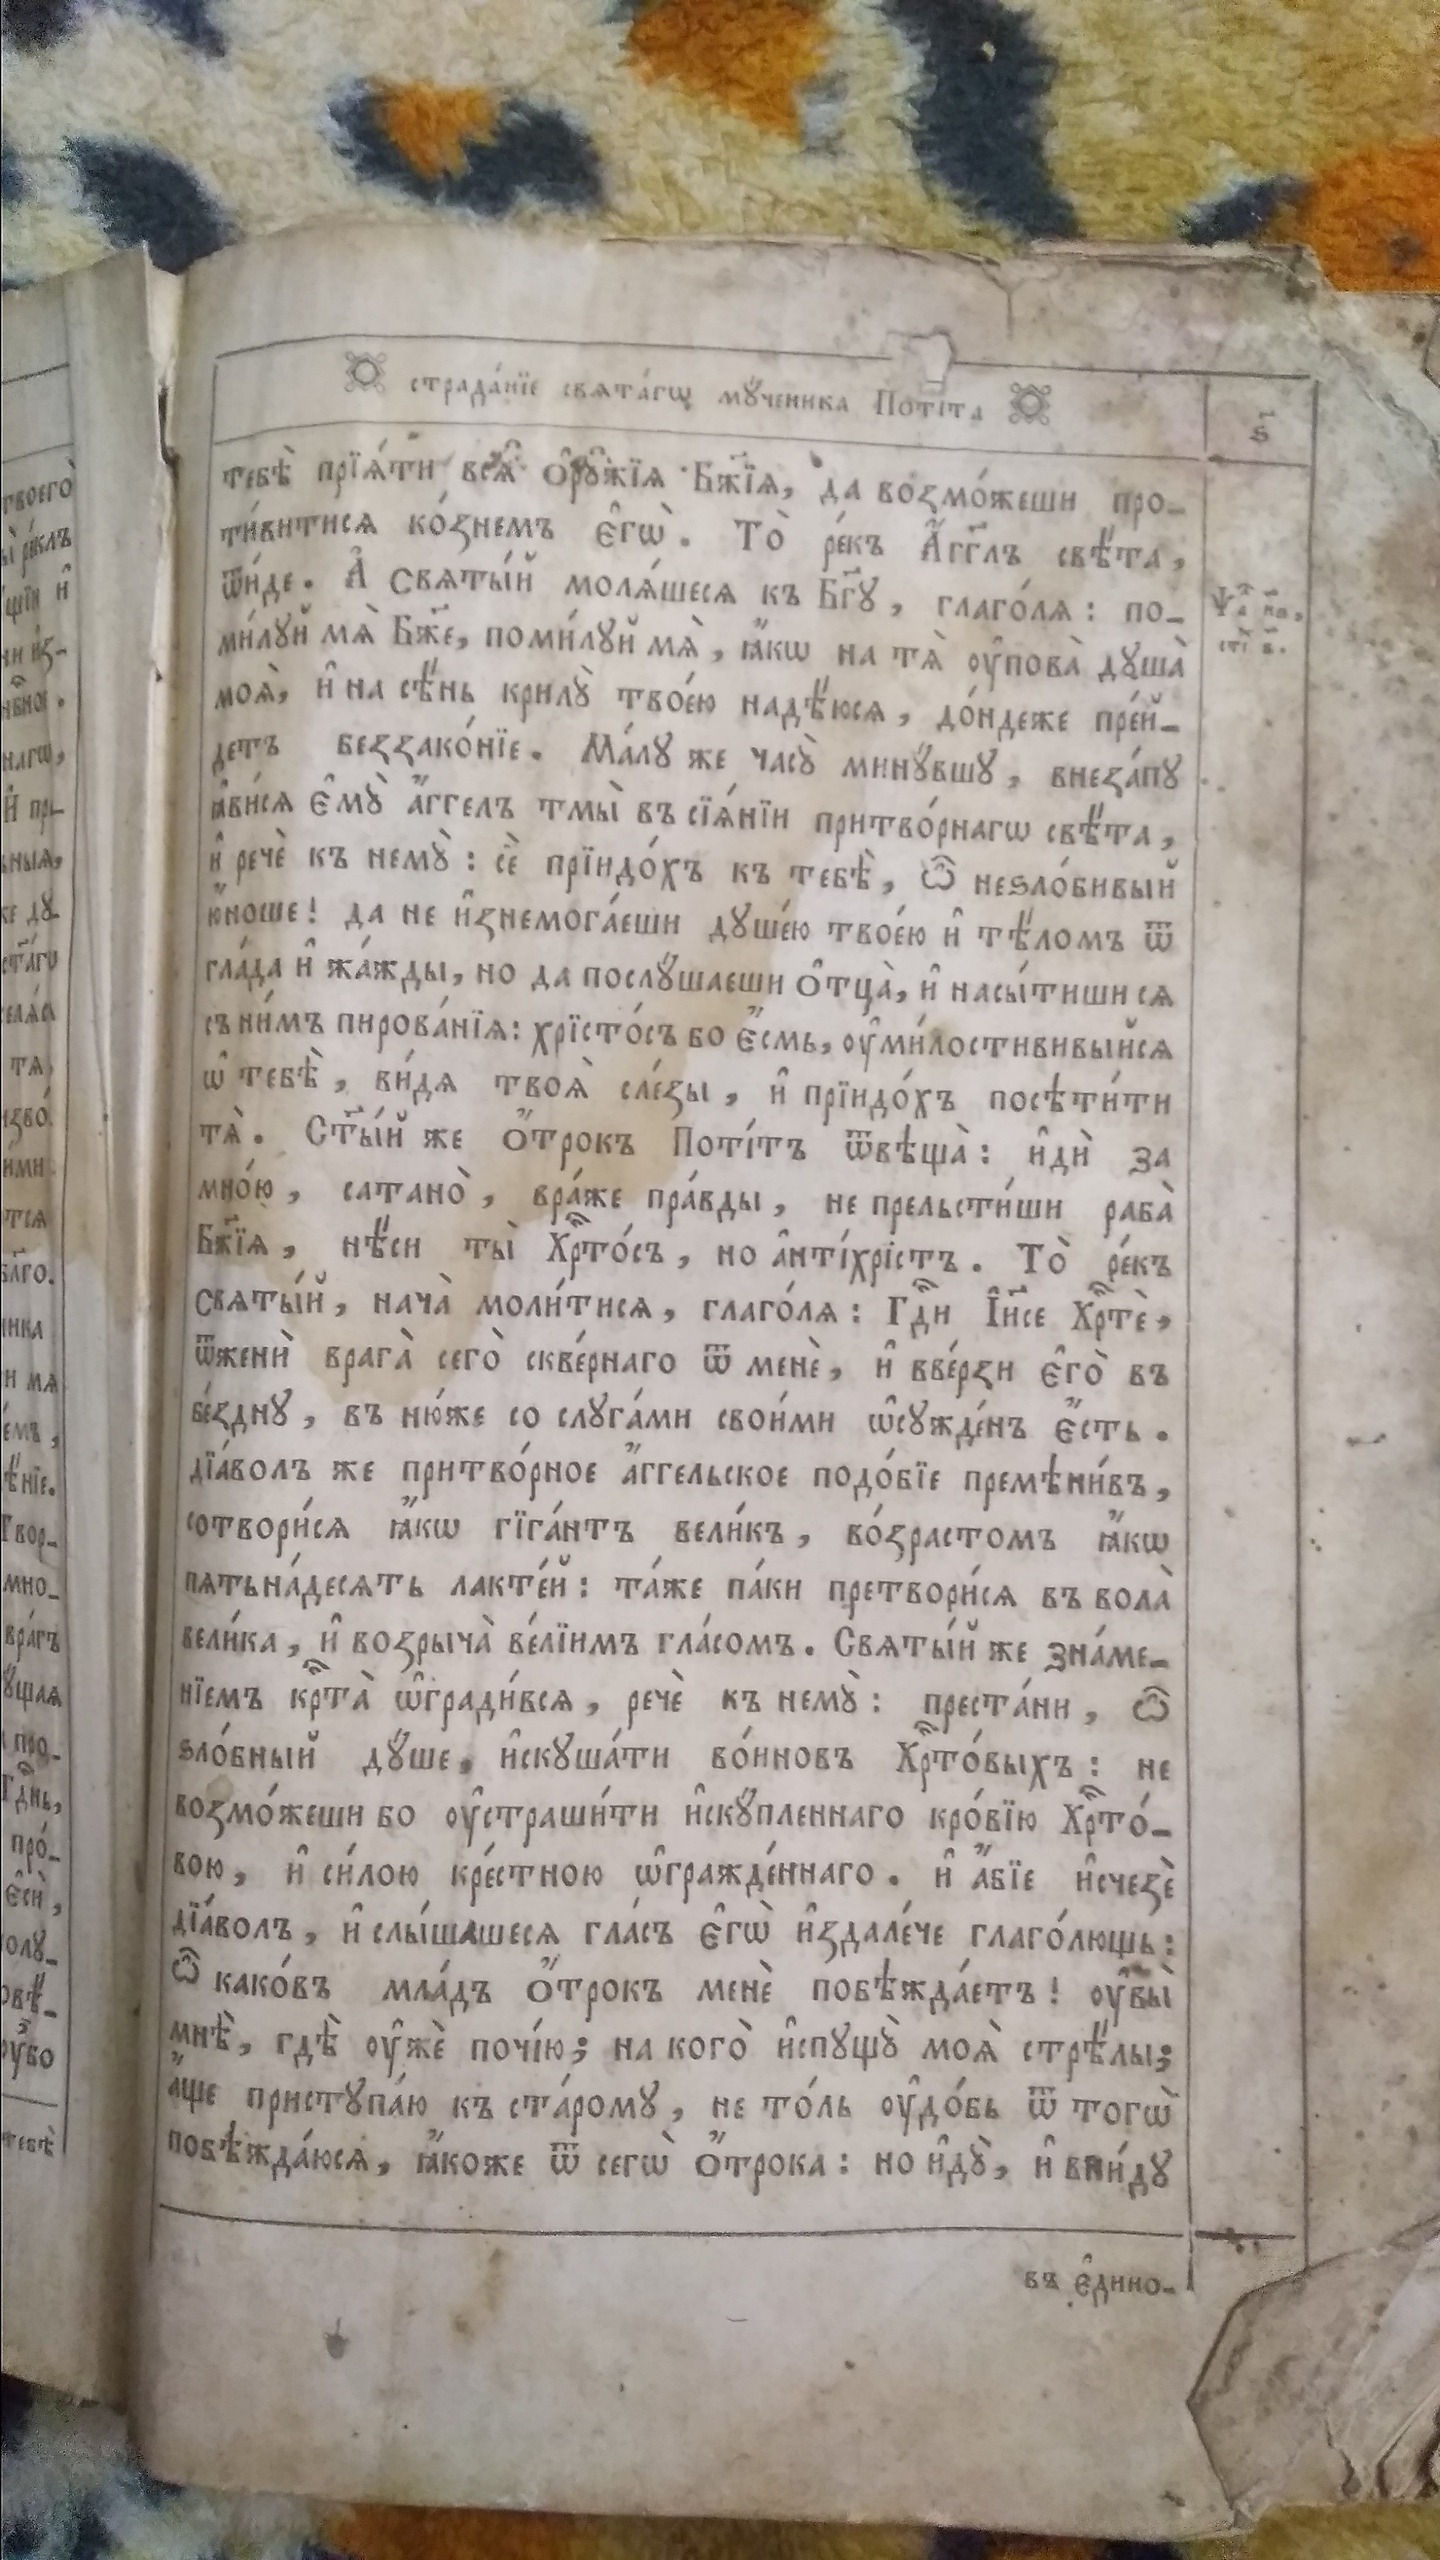 страда́нїе свята́гѡ мꙋ́ченика Поті́та
ѕ҃
тебѣ̀ прїѧ́ти всѧ̑ ѻ҆рꙋ̑жїѧ Бж҃їѧ, да возмо́жеши про-
ти́витисѧ ко́знемъ є҆гѡ̀. То̀ ре́къ А҆́гг҃лъ свѣ́та,
ѿи́де. А҆ Свѧты́й молѧ́шесѧ къ Бг҃ꙋ, глаго́лѧ: по-
ми́лꙋй мѧ̀ Бж҃е, поми́лꙋй мѧ̀, ꙗ҆́кѡ на тѧ̀ ᲂу҆пова̀ дꙋша̀
моѧ̀, и҆ на сѣ́нь крилꙋ̀ твоє́ю надѣ́юсѧ, до́ндеже пре́й-
детъ беззако́нїе. Ма́лꙋ же часꙋ̀ минꙋ́вшꙋ, внеза́пꙋ
ꙗ҆ви́сѧ є҆мꙋ̀ а҆́ггелъ тмы̀ въ сїѧ́нїи притво́рнагѡ свѣ́та,
и҆ речѐ къ немꙋ̀: сѐ прїидо́хъ къ тебѣ̀, ѽ неѕло́бивый
ю҆́ноше! да не и҆знемога́еши дꙋше́ю твое́ю и҆ тѣ́ломъ ѿ
гла́да и҆ жа́жды, но да послꙋ́шаеши ѻ҆тца̀, и҆ насы́тиши сѧ
съ ни́мъ пирова́нїѧ: хрїсто́съ бо є҆́смь, ᲂу҆ми́лостививыйсѧ
ѡ҆ тебѣ̀, ви́дѧ твоѧ̀ сле́зы, и҆ прїидо́хъ посѣти́ти
тѧ̀. Ст҃ы́й же ѻ҆́трокъ Поті́тъ ѿвѣща̀: и҆дѝ за
мно́ю, сатано̀, вра́же пра́вды, не прельсти́ши раба̀
Бж҃їѧ, нѣ́си ты̀ Хрⷭ҇то́съ, но а҆нті́хрїстъ. То̀ ре́къ
Свѧты́й, нача̀ моли́тисѧ, глаго́лѧ: Гдⷭ҇и І҆и҃се Хрⷭ҇тѐ,
ѿженѝ врага̀ сего̀ скве́рнаго ѿ менѐ, и҆ вве́рзи є҆го̀ въ
бе́зднꙋ, въ ню́же со слꙋга́ми свои́ми ѡ҆сꙋжде́нъ є҆́сть.
дїа́волъ же притво́рное а҆́ггельское подо́бїе премѣни́въ,
сотвори́сѧ ꙗ҆́кѡ гїга́нтъ вели́къ, во́зрастомъ ꙗ҆́кѡ
пѧтьна́десѧть лакте́й: та́же па́ки претвори́сѧ въ вола̀
вели́ка, и҆ возрыча̀ ве́лїимъ гла́сомъ. Свѧты́й же зна́ме-
нїемъ крⷭ҇та̀ ѡ҆гради́всѧ, речѐ къ немꙋ̀: преста́ни, ѽ
ѕло́бный дꙋ́ше, и҆скꙋша́ти во́инѡвъ Хрⷭ҇то́выхъ: не
возмо́жеши бо ᲂу҆страши́ти и҆скꙋ́пленнаго кро́вїю Хрⷭ҇то́-
вою, и҆ си́лою кре́стною ѡ҆гражде́ннаго. и҆ а҆́бїе и҆счезѐ
дїа́волъ, и҆ слы́шашесѧ гла́съ є҆гѡ̀ и҆здале́че глаго́лющь:
ѽ како́въ мла́дъ ѻ҆́трокъ менѐ побѣжда́етъ! ᲂу҆вы̀
мнѣ̀, гдѣ̀ ᲂу҆жѐ почі́ю; на кого̀ и҆спꙋщꙋ̀ моѧ̀ стрѣ́лы;
а҆́ще пристꙋпа́ю къ ста́ромꙋ, не то́ль ᲂу҆до́бь ѿ тогѡ̀
побѣжда́юсѧ, ꙗ҆́коже ѿ сегѡ̀ ѻ҆́трока: но и҆дꙋ̀, и҆ вни́дꙋ
въ є҆дино-